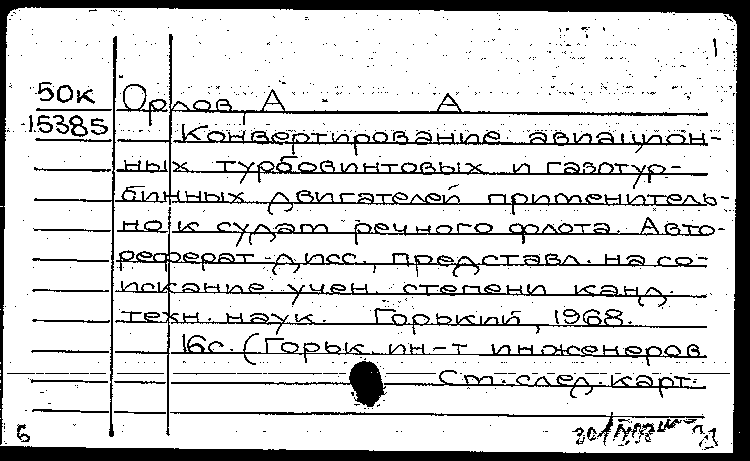 1
50к Орлов, А А
15385 Конвертирование авиацион-
ных турбовинтовых и газотур-
бинных двигателей применитель-
но к судам речного флота. Авто-
реферат дисс., представл. на со-
искание учен. степени канд.
техн. наук. Горький, 1968.
16с. (Горьк ин-т инженеров
См. след. карт.
6